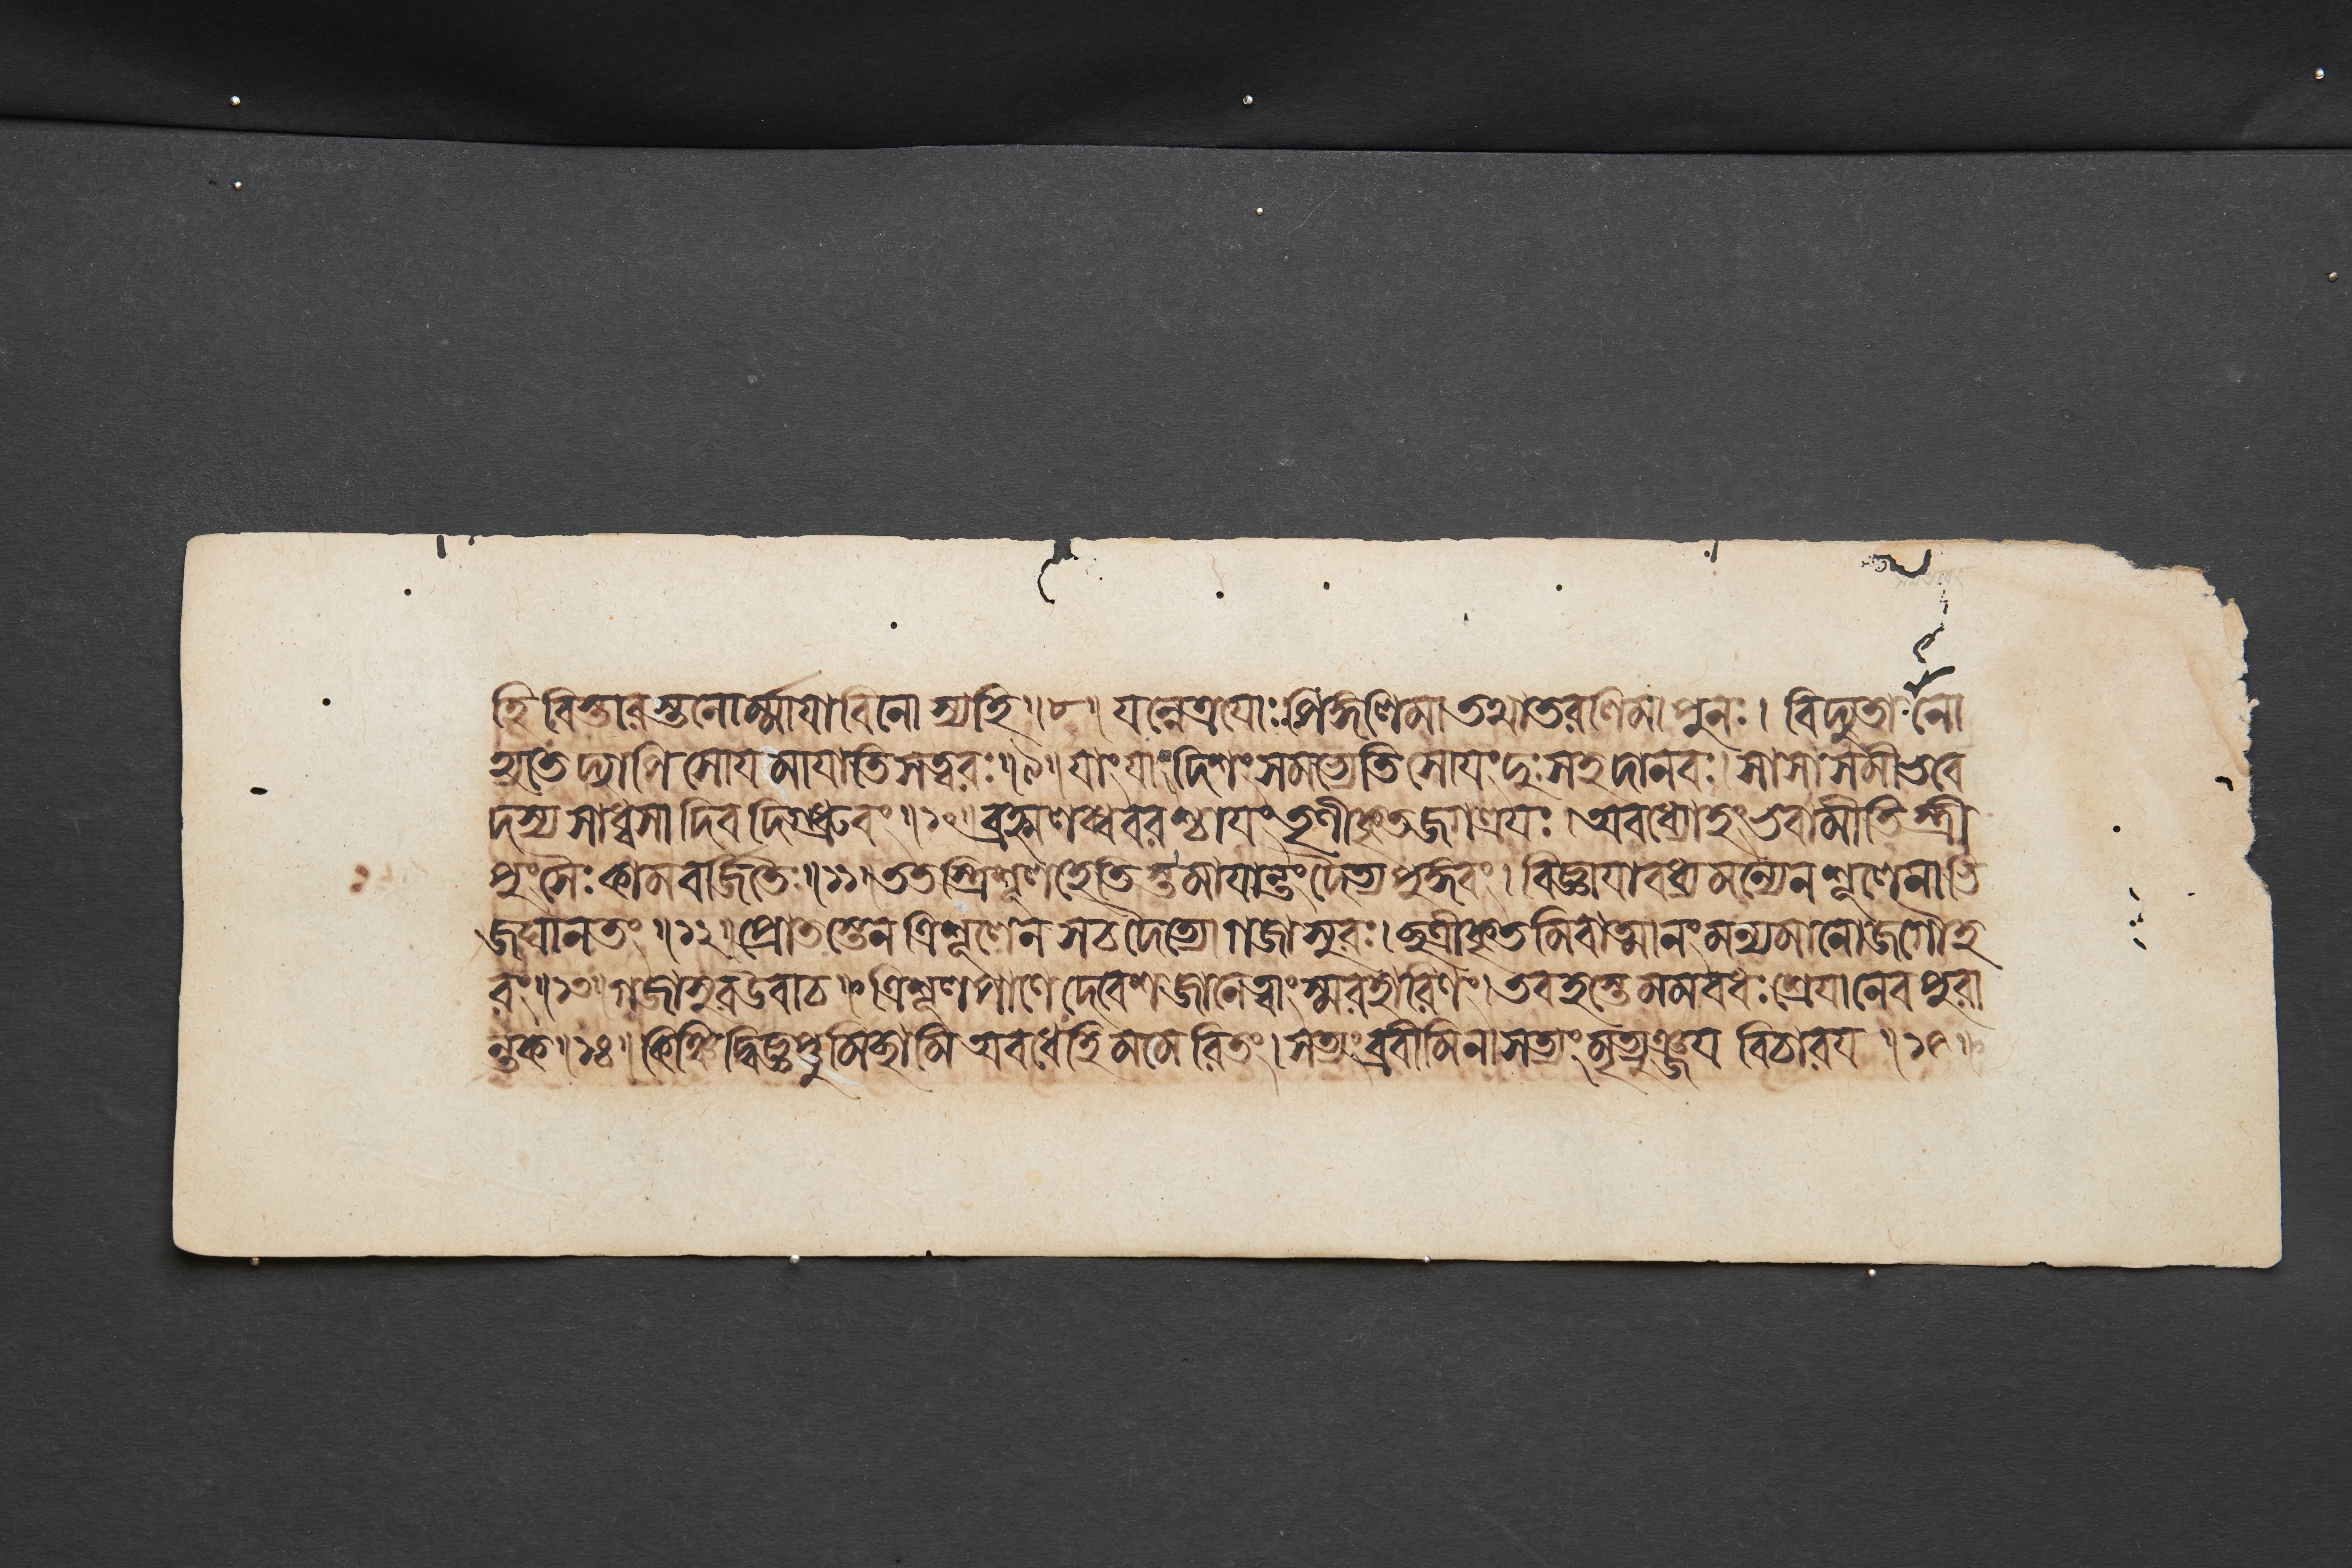 হি বিস্তারস্তনোর্ম্মাযাবিনোস্যহি॥৮॥ যন্নেত্রযোঃ পিঙ্গলিমা তথাতরলিমা পুনঃ। বিদ্যুতা নো
হ্যতেদ্যাপি সোযমাযাতি সত্বরঃ॥৯॥ যাং যাং দিশং সমভ্যেতি সোযং দুঃসহ দানবঃ। সা সা সমীভবে
দস্য সাধ্বসাদিব দিগ্ধ্রুবং॥১০॥ ব্রহ্মলব্ধবরশ্চাযং তৃণীকৃতজগত্রযঃ। অবধ্যোহং ভবামীতি স্ত্রী
পুংসৈঃ কামবর্জিতৈঃ॥১১॥ ততস্ত্রিশূলহেতিস্তমাযান্তং দৈত্যপুঙ্গবং। বিজ্ঞাযাবধ্যমন্যেন শূলেনাভি
জঘানতং॥১২॥ প্রোতস্তেন ত্রিশূলেন সচ দৈত্যো গজাসুরঃ। ছত্রীকৃতমিবাত্মানং মন্যমানো জগৌ হ
রং॥১৩॥ গজাসুর উবাচ॥ ত্রিশূলপাণে দেবেশ জানে ত্বাং স্মরহারিণং। তব হস্তে মম বধঃ শ্রেযানেব পুরা
ন্তক॥১৪॥ কিঞ্চিদ্বিজ্ঞপ্তুমিচ্ছামি অবধেহি মমেরিতং। সত্যং ব্রবীমি নাসত্যং মৃত্যুঞ্জয বিচারয॥১৫॥